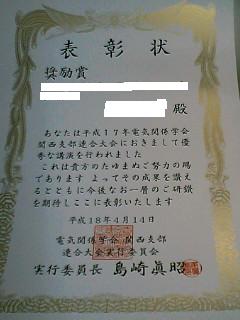 表彰状
奨励賞
殿
あなたは平成17年電気関係学会
関西支部連合大会におきまして優
秀な講演を行われました
これは貴方のたゆまぬご努力の賜
であります よってその成果を讃え
るとともに今後なお一層のご研鑽
を期待しここに表彰いたします
平成18年4月14日
電気関係学会 関西支部
連合大会実行委員会
実行委員長 島崎眞昭